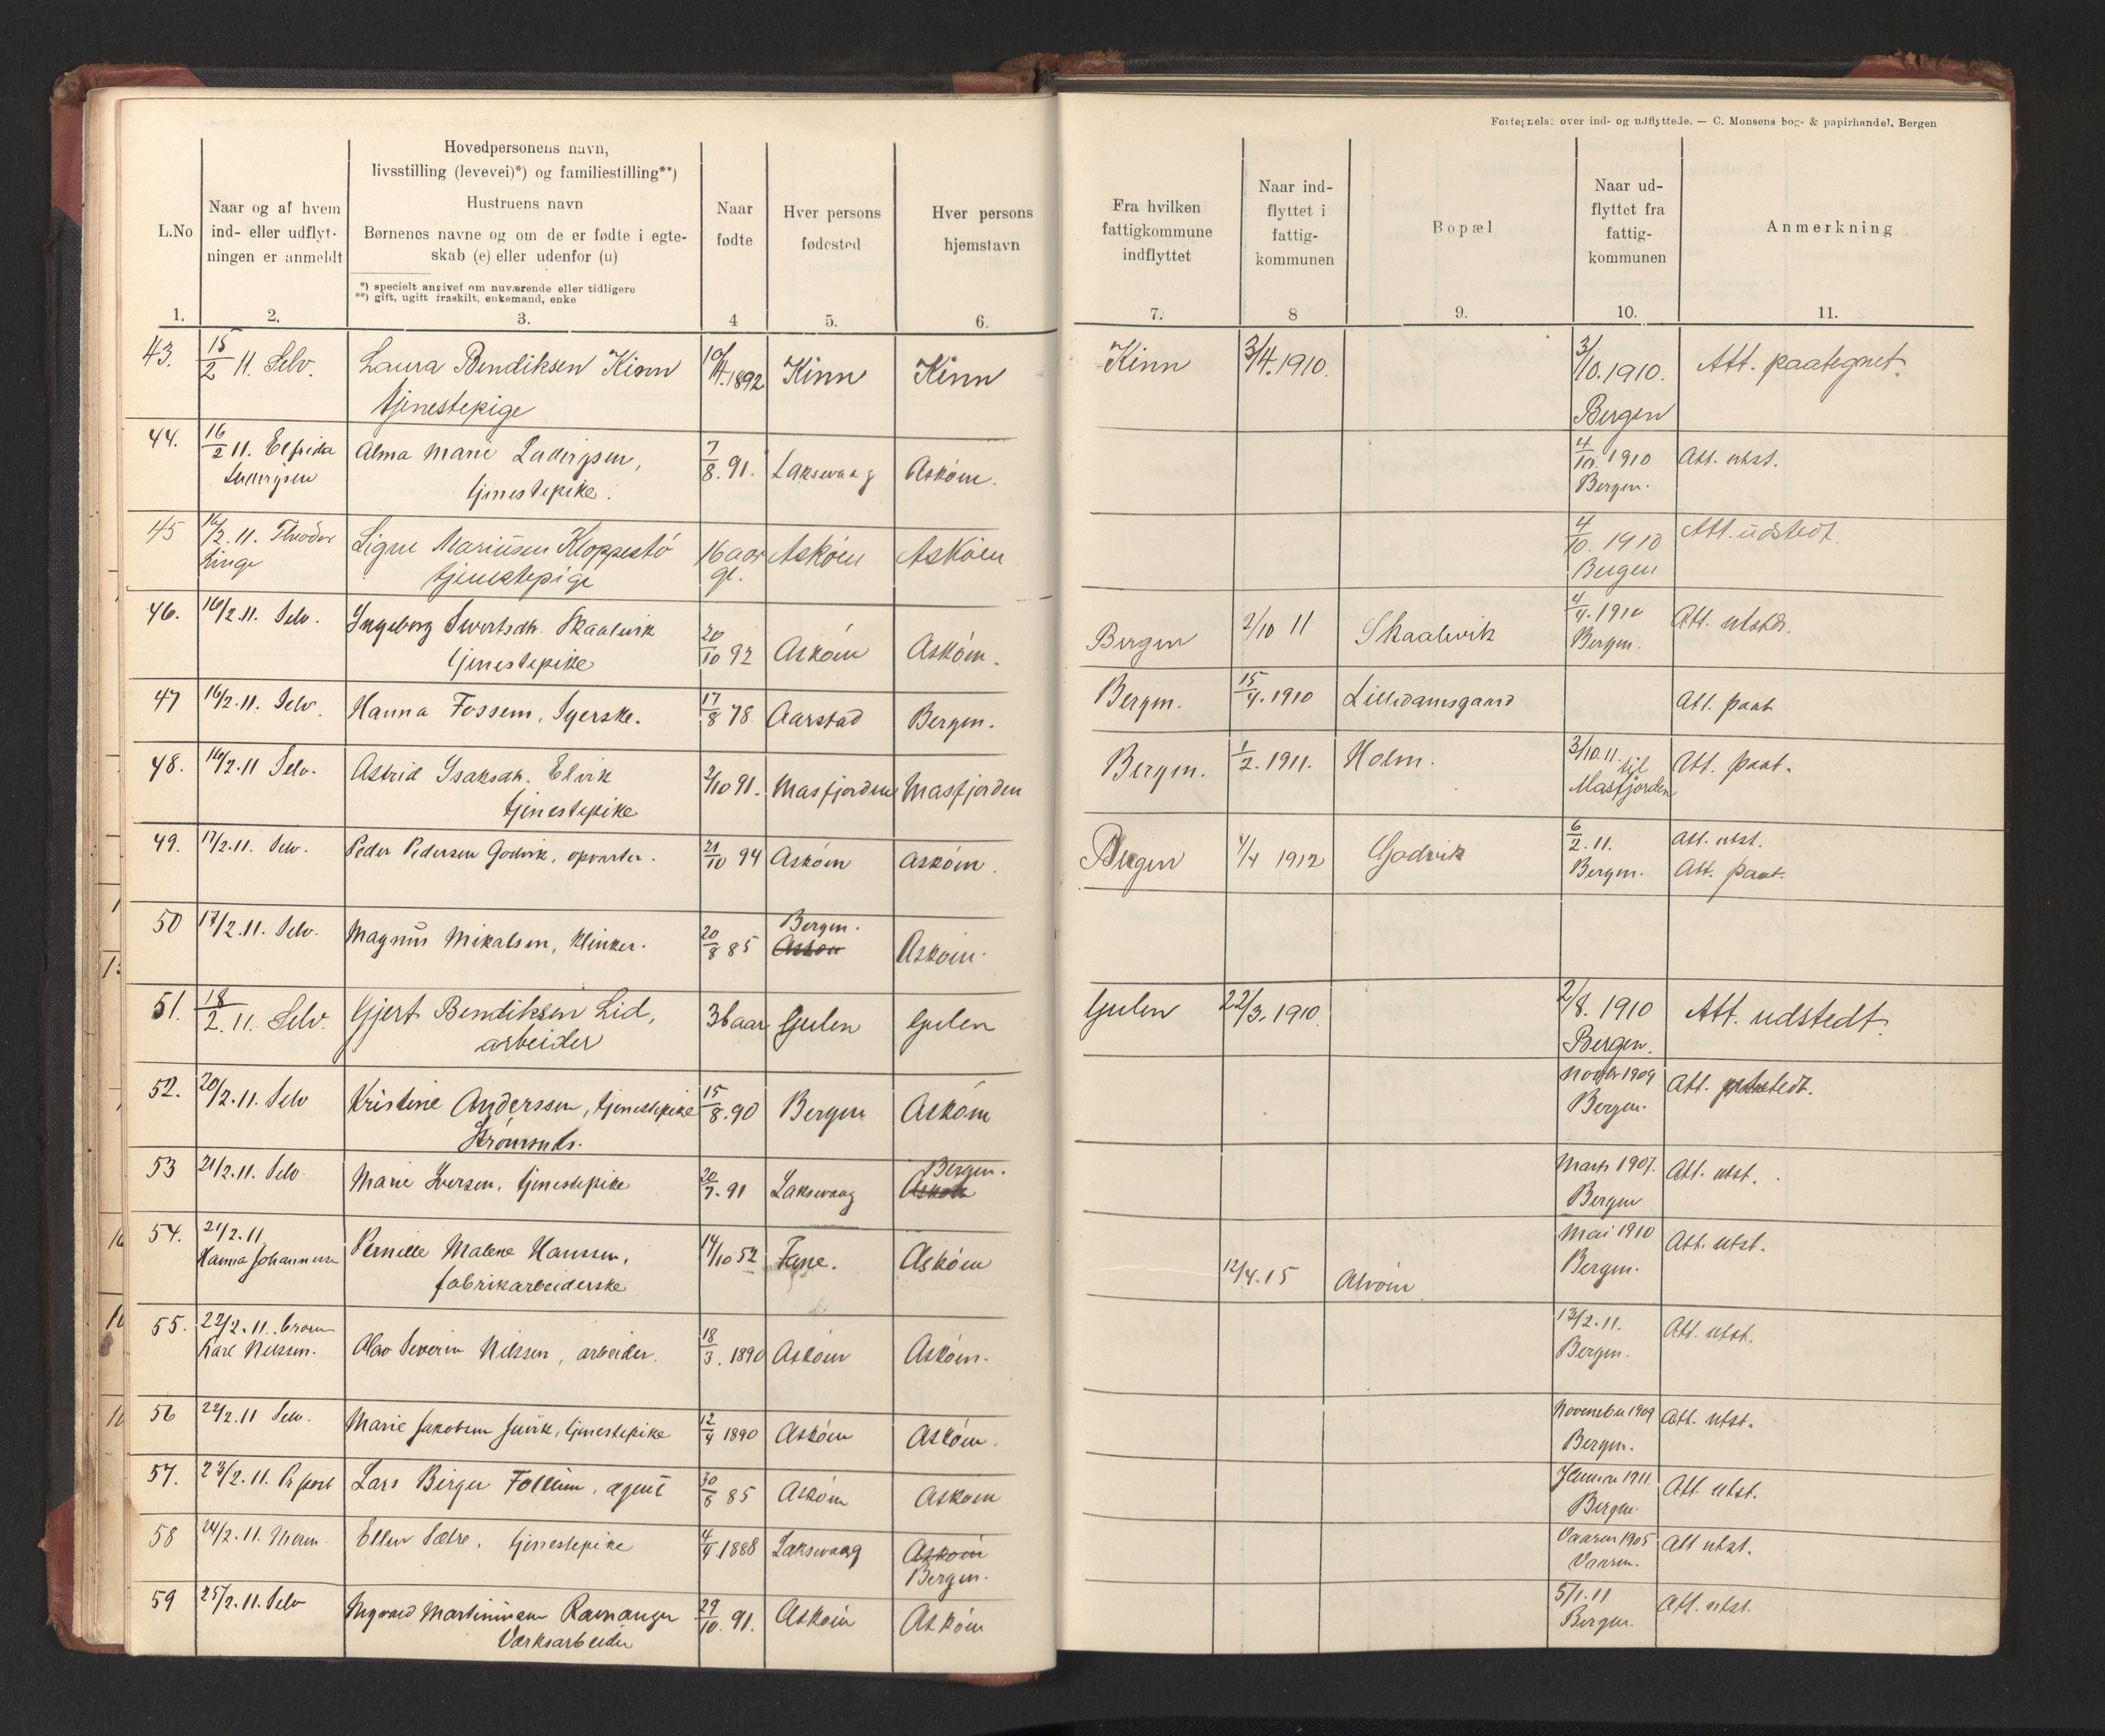 Fortegnelse over ind- og udflyttede. — C. Monsens bog- & papirhandel, Bergen
L.No
1.
Naar og af hvem
ind- eller udflyt-
ningen er anmeldt
2.
Hovedpersonens navn,
livsstilling (levevei)*) og familiestilling**)
Hustruens navn
Børnenes navne og om de er fødte i egte-
skab (e) eller udenfor (u)
*) specielt angivet om nuværende eller tidligere
**) gift, ugift fraskilt, enkemand, enke
3.
Naar
fødte
4
Hver persons
fødested
5.
Hver persons
hjemstavn
6.
Fra hvilken
fattigkommune
indflyttet
7.
Naar ind-
flyttet i
fattig-
kommunen
8
Bopæl
9.
Naar ud-
flyttet fra
fattig-
kommunen
10.
Anmerkning
11.
43. 15/2 11. Selv. Laura Bendiksen Kinn 1892 Kinn Kinn Kinn 3/4.1910. 3/10.1910. Att. paategnet.
tjenestepige Bergen
44. 16/2 11. Elfrida Alma Marie 7/8.91. Laksevaag Askøen. 4/10.1910 Att. utst.
tjenestepike. Bergen.
45 16/2.11. Theodor Signe Mariusen Kloppestø 16 aar Askøen Askøen 4/10. 1910 Att. udstedt.
Linge tjenestepige gl. Bergen
46. 16/2.11. Selv. Ingeborg Sivertsdtr. Skaalevik 20/10 92 Askøen Askøen. Bergen 2/10 11 Skaalevik 4/4.1910 Att. utstdt.
tjenestepike Bergen.
47 16/2.11. Selv. Hanna Fossem, Syerske. 17/8 78 Aarstad Bergen. Bergen. 15/4.1910 Lilledamsgaard Att. paat
48. 16/2.11 Selv. Astrid Isaksdtr. Elvik 2/10 91. Masfjorden Masfjorden Bergen. 1/2.1911. Holm. 3/10.11. til Att. paat.
tjenestepike Masfjorden
49. 17/2.11. Selv. Peder Pedersen Godvik, opvarter. 21/10 94 Askøen Askøen. Bergen 4/4 1912 Godvik 6/2.11. Att. utst.
Bergen. Att. paat.
50 17/2.11. Selv. Magnus Mikalsen, klinker. 20/8 85 Bergen. Askøen Askøen.
51. 18/2.11. Selv. Gjert Bendiksen Lid, 36 aar Gulen Gulen Gulen 22/3.1910. 2/8.1910 Att. udstedt.
arbeider Bergen.
52. 20/2.11. Selv Kristine Anderssen, tjenestepike 15/8.90 Bergen Askøen 1909 Att. utstedt.
Strømsnes. Bergen.
53 21/2.11. Selv. Marie Iversen, tjenestepike 20/7.91 Laksevaag Bergen. Askøen Marts 1907. Att. utst.
Bergen
54. 21/2.11 Pernille Malene Hanssen, 14/10 52 Fane. Askøen Mai 1910 Att. utst.
Hanna Johannessen fabrikarbeiderske 12/4.15 Alvøen Bergen.
55. 22/2.11. broren Olav Severin Nilssen, arbeider. 18/3.1890 Askøen Askøen. 13/2.11. Att. utst.
Karl Nilssen. Bergen.
56 22/2.11 Selv. Marie Jakobsen Juvik, tjenestepike 12/4 1890 Askøen Askøen. November 1909 Att. utst.
Bergen.
57. 23/2.11. Pr post Lars Birger Follum, agent 30/8 85 Askøen Askøen Januar 1911. Att. utst.
Bergen.
58 24/2.11. Moren Ellen Sætre, tjenestepike 4/4.1888 Laksevaag Askøen Vaaren 1905 Att utst.
Bergen. Vaaren.
59 25/2.11. Selv Sigvard Martinusen Ramanger 29/10.91. Askøen Askøen 5/1.11 Att. utst.
Verksarbeider Bergen.